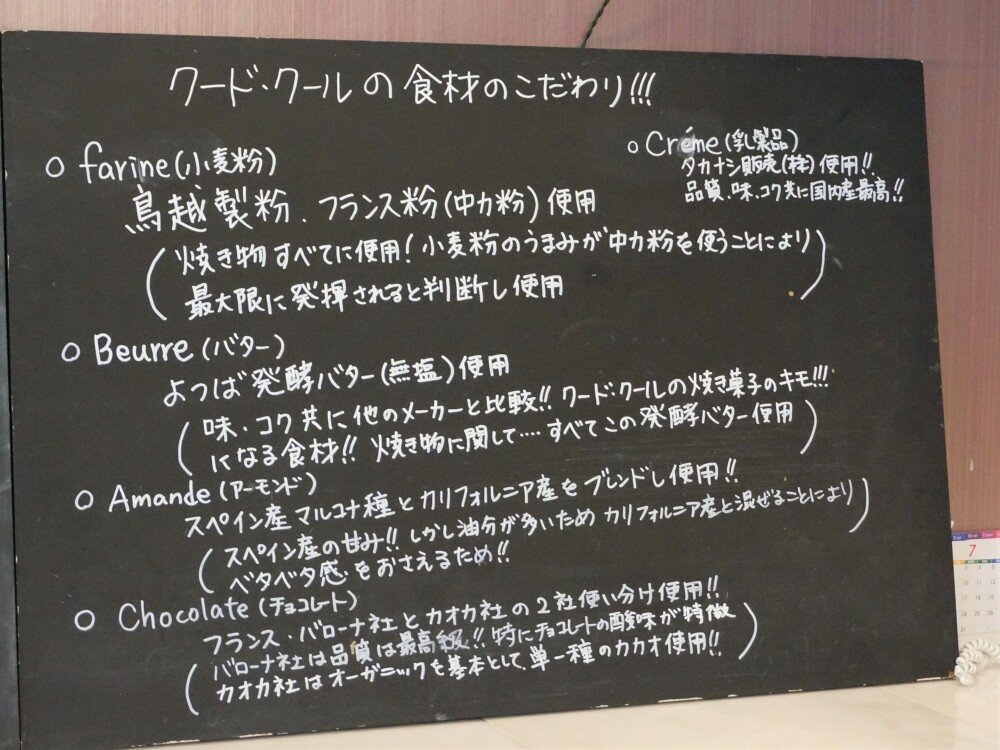 クード・クールの食材のこだわり!!!
○ farine(小麦粉)
鳥越製粉、フランス粉(中力粉)使用
(焼き物すべてに使用!小麦粉のうまみが中力粉を使うことにより
最大限に発揮されると判断し使用)
○ Créme(乳製品)
タカナシ販売(株)使用!!
品質、味、コク共に国内産最高!!
○ Beurre(バター)
よつば発酵バター(無塩)使用
(味・コク共に他のメーカーと比較!!クード・クールの焼き菓子のキモ!!!
になる食材!!焼き物に関して....すべてこの発酵バター使用)
○ Amande(アーモンド)
スペイン産マルコナ種とカリフォルニア産をブレンドし使用!!
(スペイン産の甘み!!しかし油分が多いためカリフォルニア産と混ぜることにより
ベタベタ感をおさえるため!!)
○ Chocolate(チョコレート)
フランス・バローナ社とカオカ社の2社使い分け使用!!
(バローナ社は品質は最高級!!特にチョコレートの酸味が特徴
カオカ社はオーガニックを基本として、単一種のカカオ使用!!)
7